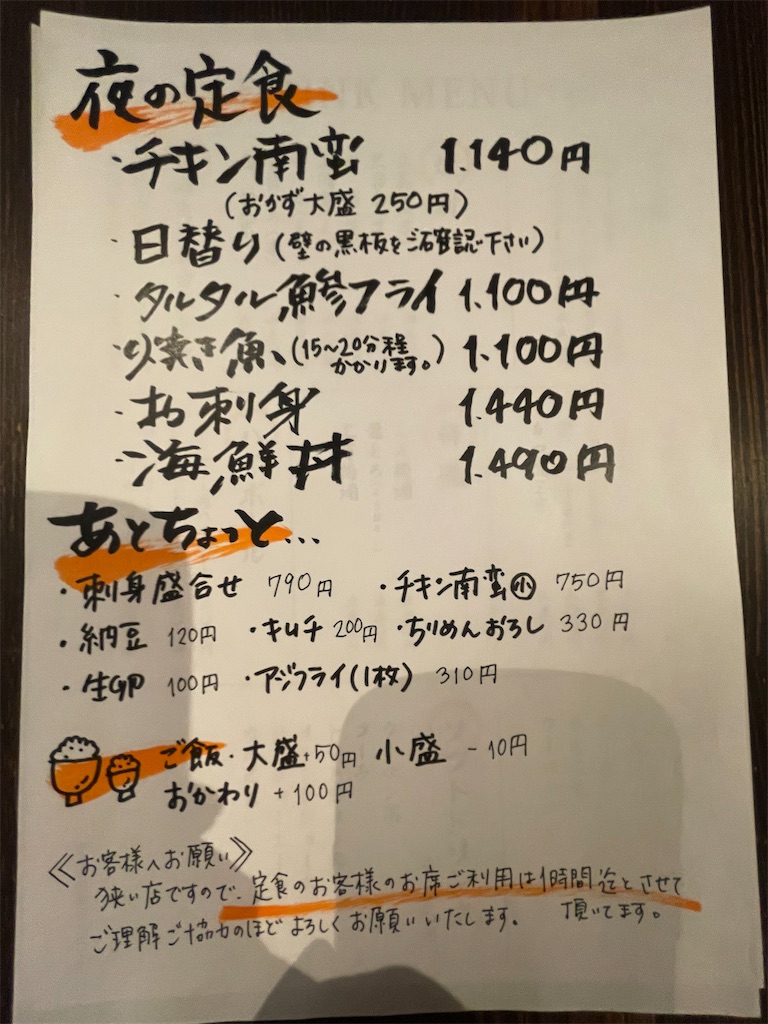 夜の定食
・チキン南蛮 1.140円
(おかず大盛 250円)
・日替り(壁の黒板をご確認下さい)
・タルタル鯵フライ 1.100円
・焼き魚、(15~20分程かかります。) 1.100円
・お刺身 1.440円
・海鮮丼 1.490円
あとちょっと...
・刺身盛合せ 790円 ・チキン南蛮㊥ 750円
・納豆 120円 ・キムチ 200円 ・ちりめんおろし 330円
・生卵 100円 ・アジフライ(1枚) 310円
ご飯・大盛+50円 小盛 -10円
おかわり +100円
≪お客様へお願い≫
狭い店ですので、定食のお客様のお席ご利用は1時間迄とさせて
頂いてます。
ご理解ご協力のほどよろしくお願いいたします。